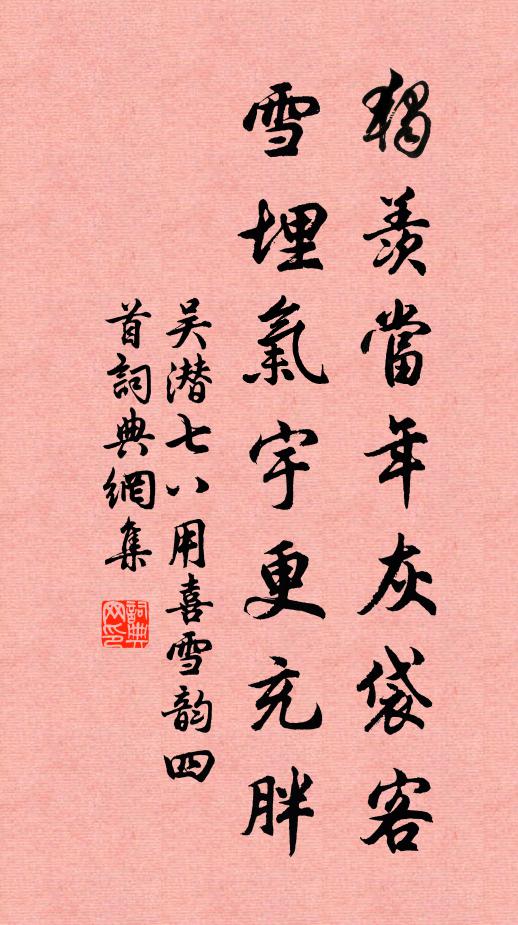 獨羨當年灰袋客
雪埋氣宇更充胖
吴潛七八用喜雪韵四
首詞典網集
詞典网印